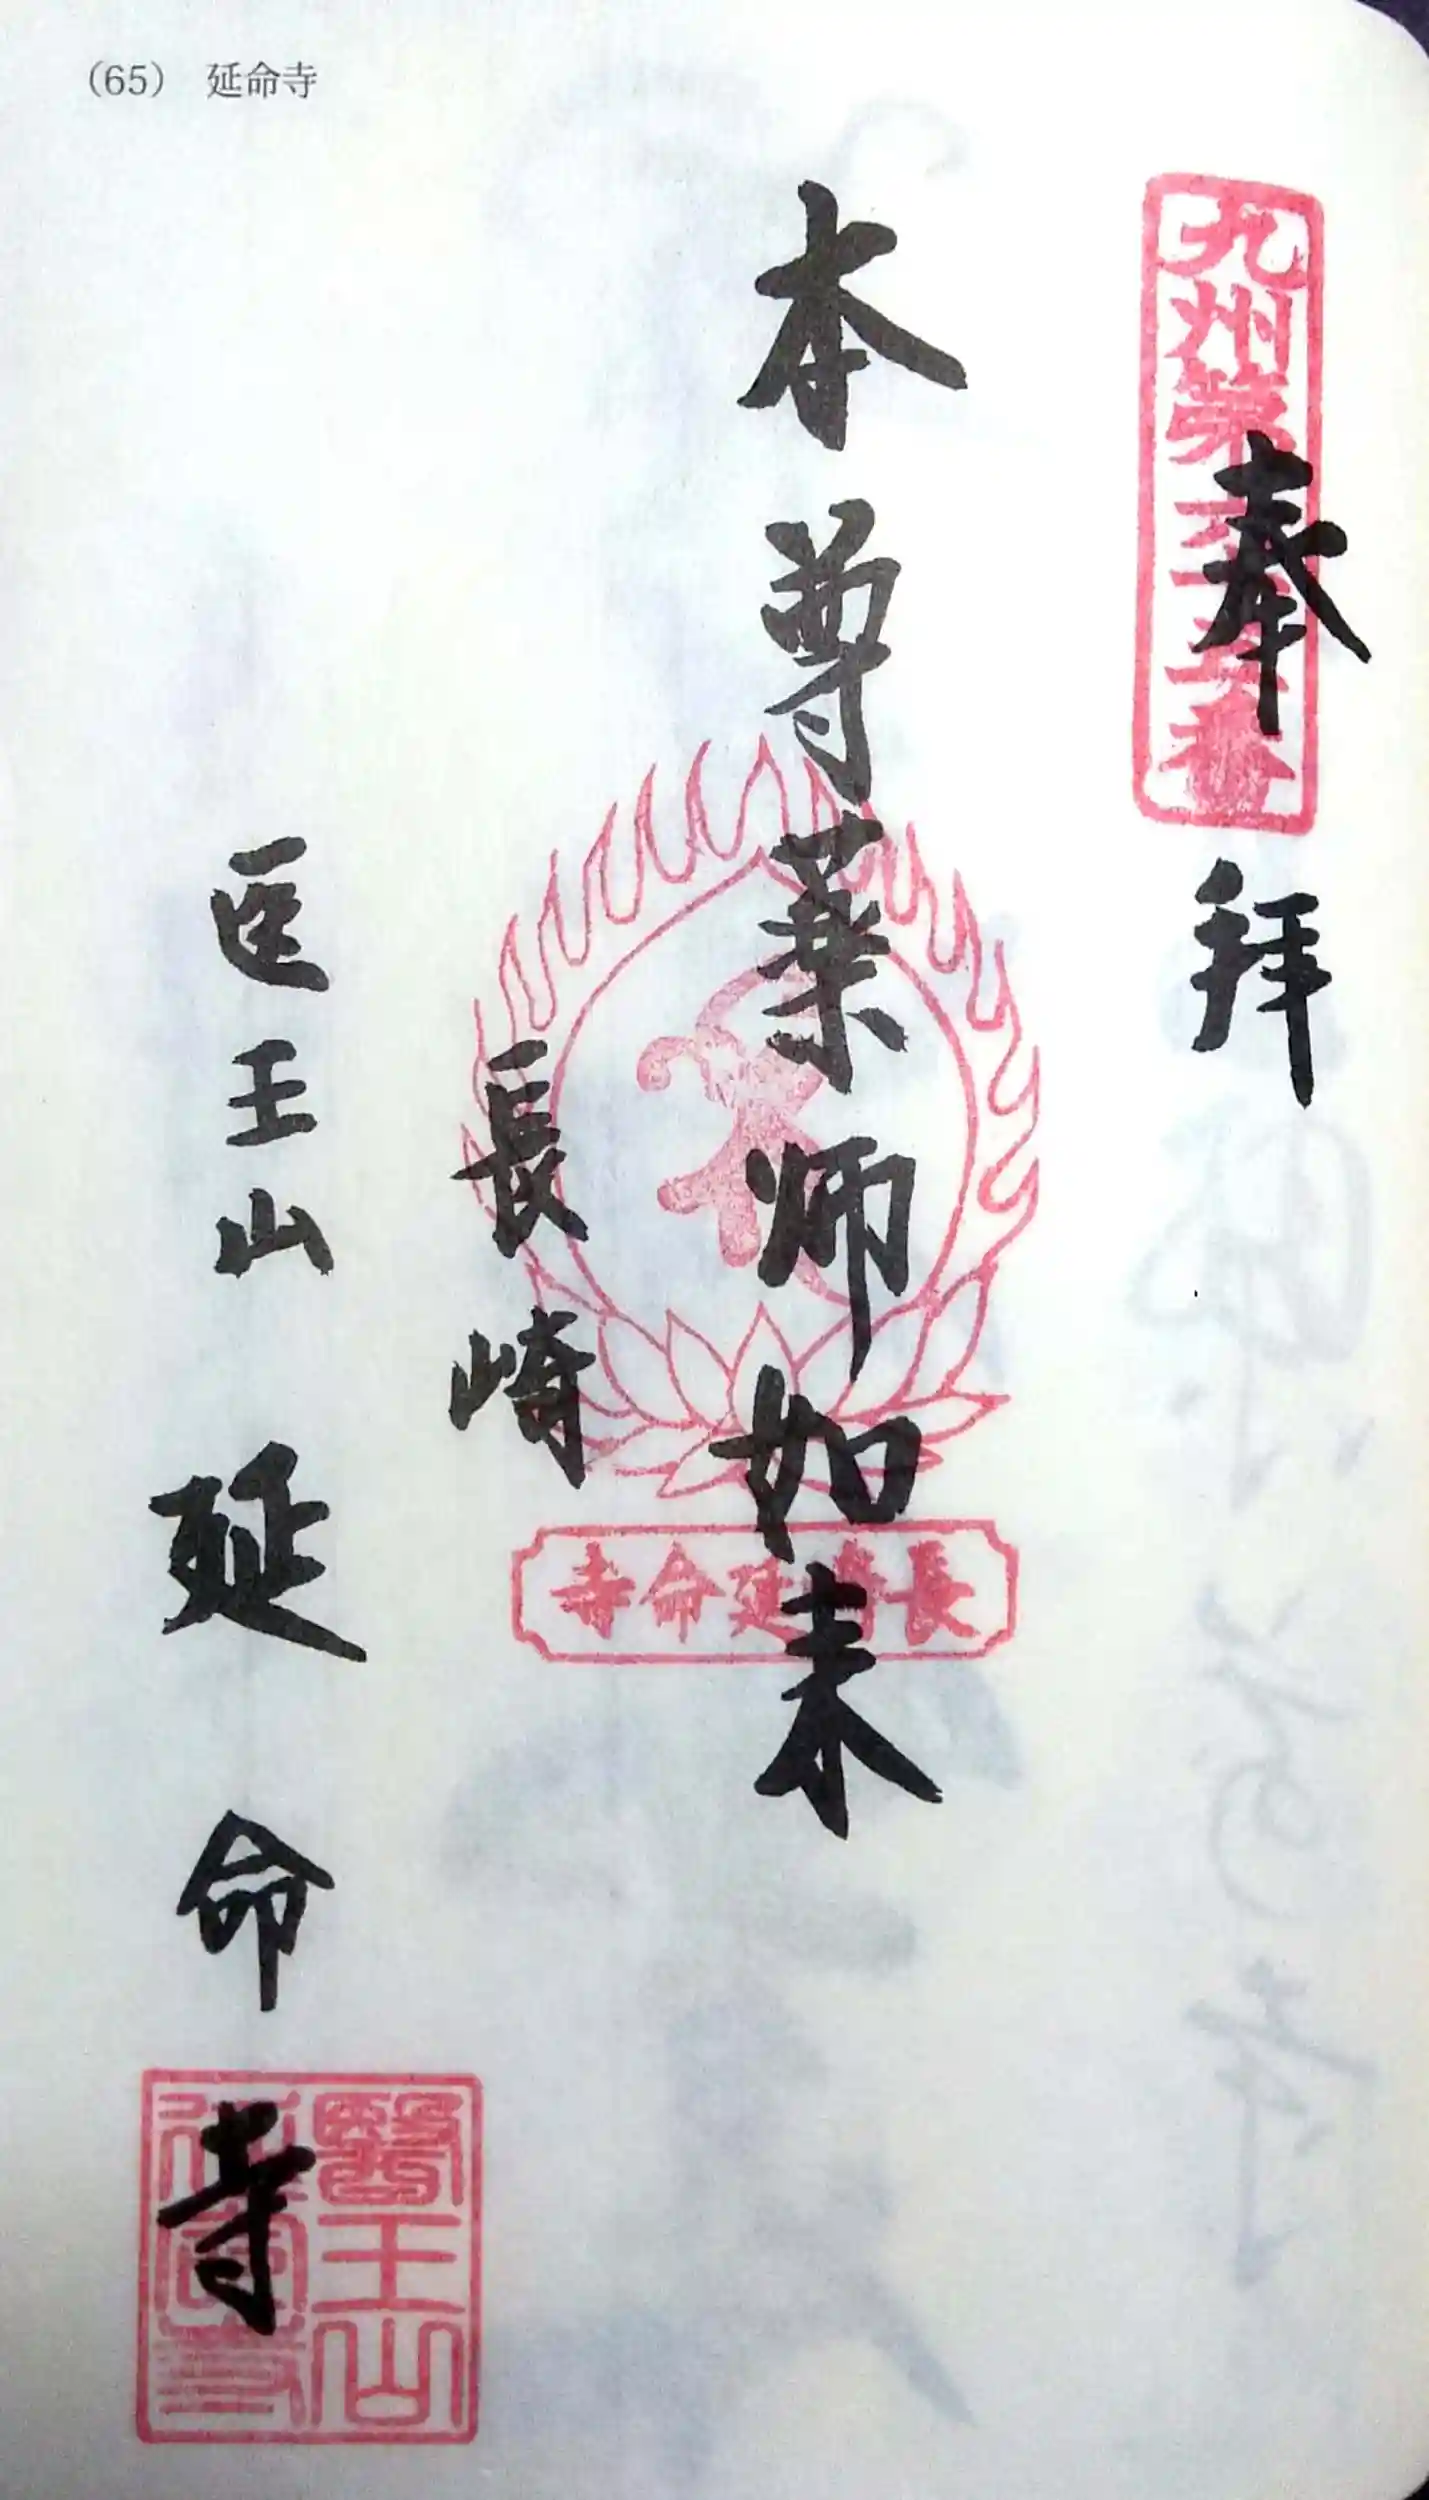 (65) 延命寺
九州第六十五番
奉拝
本尊薬師如来
長崎延命寺
長崎
医王山 延命寺
醫王山
延命寺